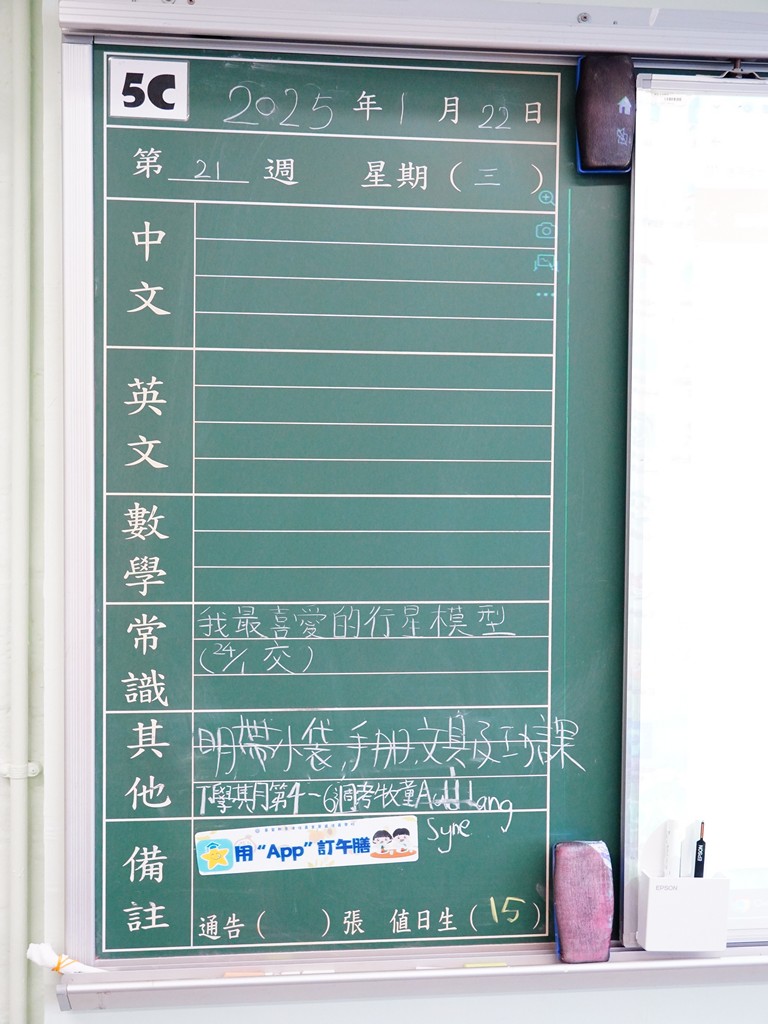 5C 2025年1月22日
第 21 週 星期(三)
中文
英文
數學
常識
我最喜愛的行星模型
(24/1 交)
其他
明帶小袋,手冊,文具及功課
下學期月第4-6週考牧童Auld Lang
Syne
備註
用“App”訂午膳
通告( )張 值日生(15)
EPSON
EPSON